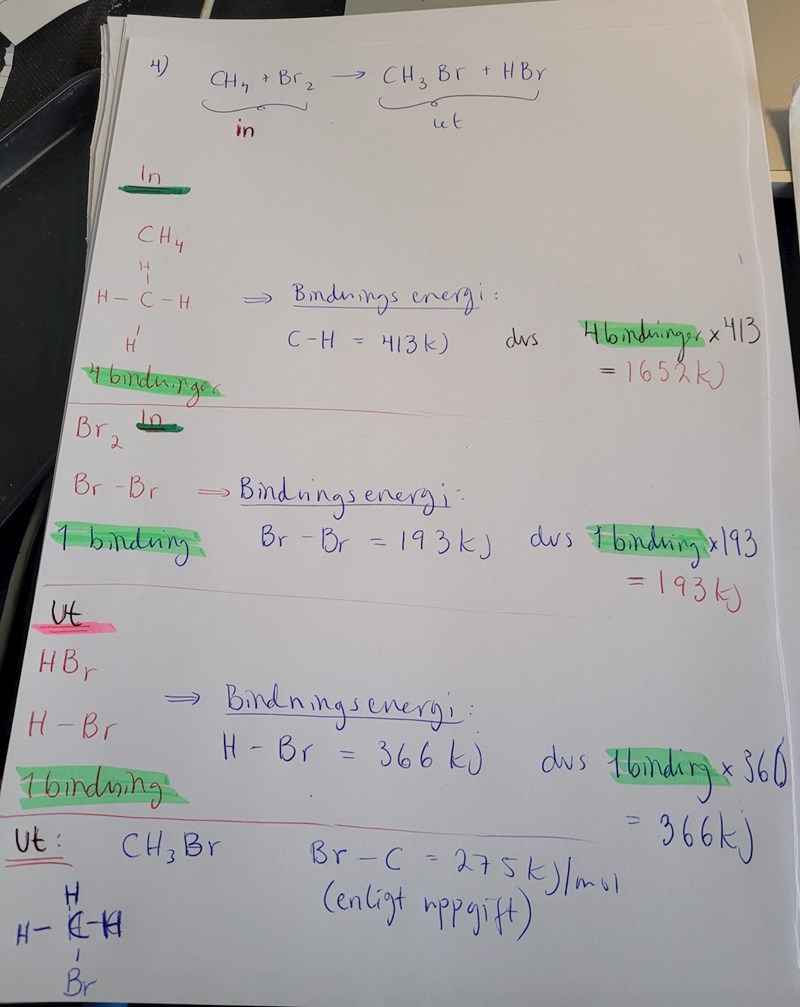 4) CH4 + Br2 → CH3 Br + HBr
in ut
In
CH4
H
H – C – H ⇒ Bindnings energi:
H C-H = 413kJ dvs 4 bindninger × 413
4 bindninger = 1652kJ
Br2 In
Br - Br ⇒ Bindningsenergi:
1 bindning Br - Br = 193kJ dvs 1 bindning × 193
= 193kJ
Ut
HBr
⇒ Bindningsenergi:
H - Br H - Br = 366 kJ dvs 1 binding × 366
1 bindning = 366kJ
Ut: CH3Br Br - C = 275 kJ/mol
(enligt uppgift)
H
H - C - H
Br